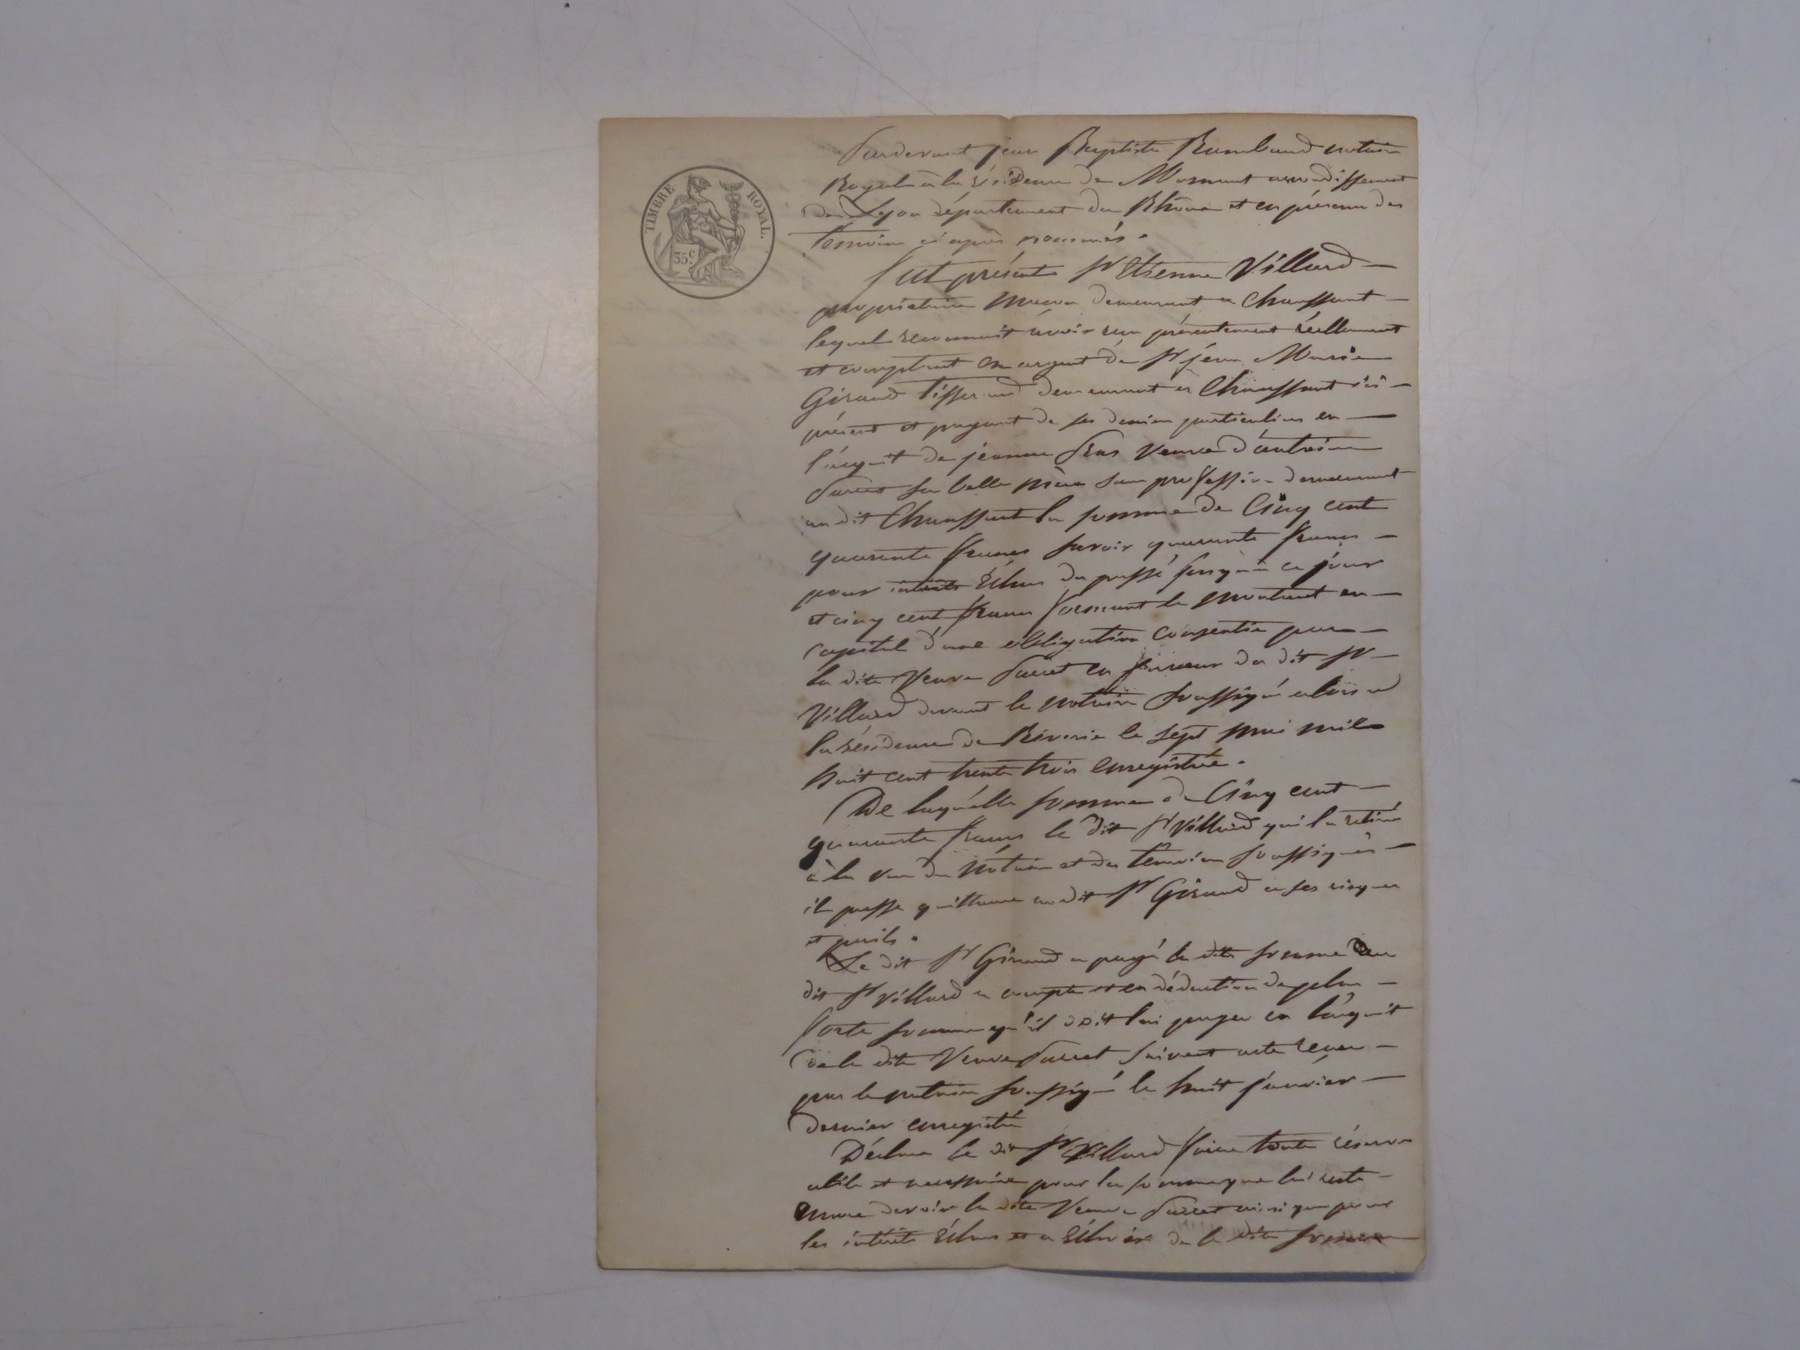 TIMBRE ROYAL.
35 c.
Pardevant jean Baptiste Rambaud notaire
Royal à la résidence de Mornant arrondissement
de Lyon département du Rhône et en présence des
témoins ci après nommés.
fut présent Sr Etienne Villard
propriétaire demeurant a Chaussant
lequel reconnait avoir reçu présentement réellement
et comptant en argent de Sr jean Marie
Giraud tisserand demeurant à Chaussant ici
présent et payant de ses deniers particuliers en
l'acquit de jeanne veuve d'antoine
sa belle mère sans profession demeurant
au dit Chaussant la somme de Cinq cent
quarante francs savoir quarante francs
pour intérêts échus du passé jusqu'à ce jour
et cinq cent francs formant le montant en
capital d'une obligation consentie par
la dite Veuve en faveur du dit Sr
Villard devant le notaire soussigné alors a
la résidence de Riverie le sept mai mil
huit cent trente trois enregistrée.
De laquelle somme de Cinq cent
quarante francs le dit Sr Villard qui l'a retiré
à la vue du Notaire et des témoins soussignés
il passe quittance au dit Sr Giraud a ses risques
et perils.
Le dit Sr Giraud a payé la dite somme au
dit Sr Villard a compte et en déduction de plus
forte somme qu'il doit lui payer en l'acquit
de la dite Veuve suivant acte reçu
par le notaire soussigné le huit janvier
dernier enregistré
Déclare le dit Sr Villard faire toute réserve
utile et necessaire pour la somme que lui reste
encore devoir la dite Veuve ainsi que pour
les intérêts échus et a échoir de la dite somme